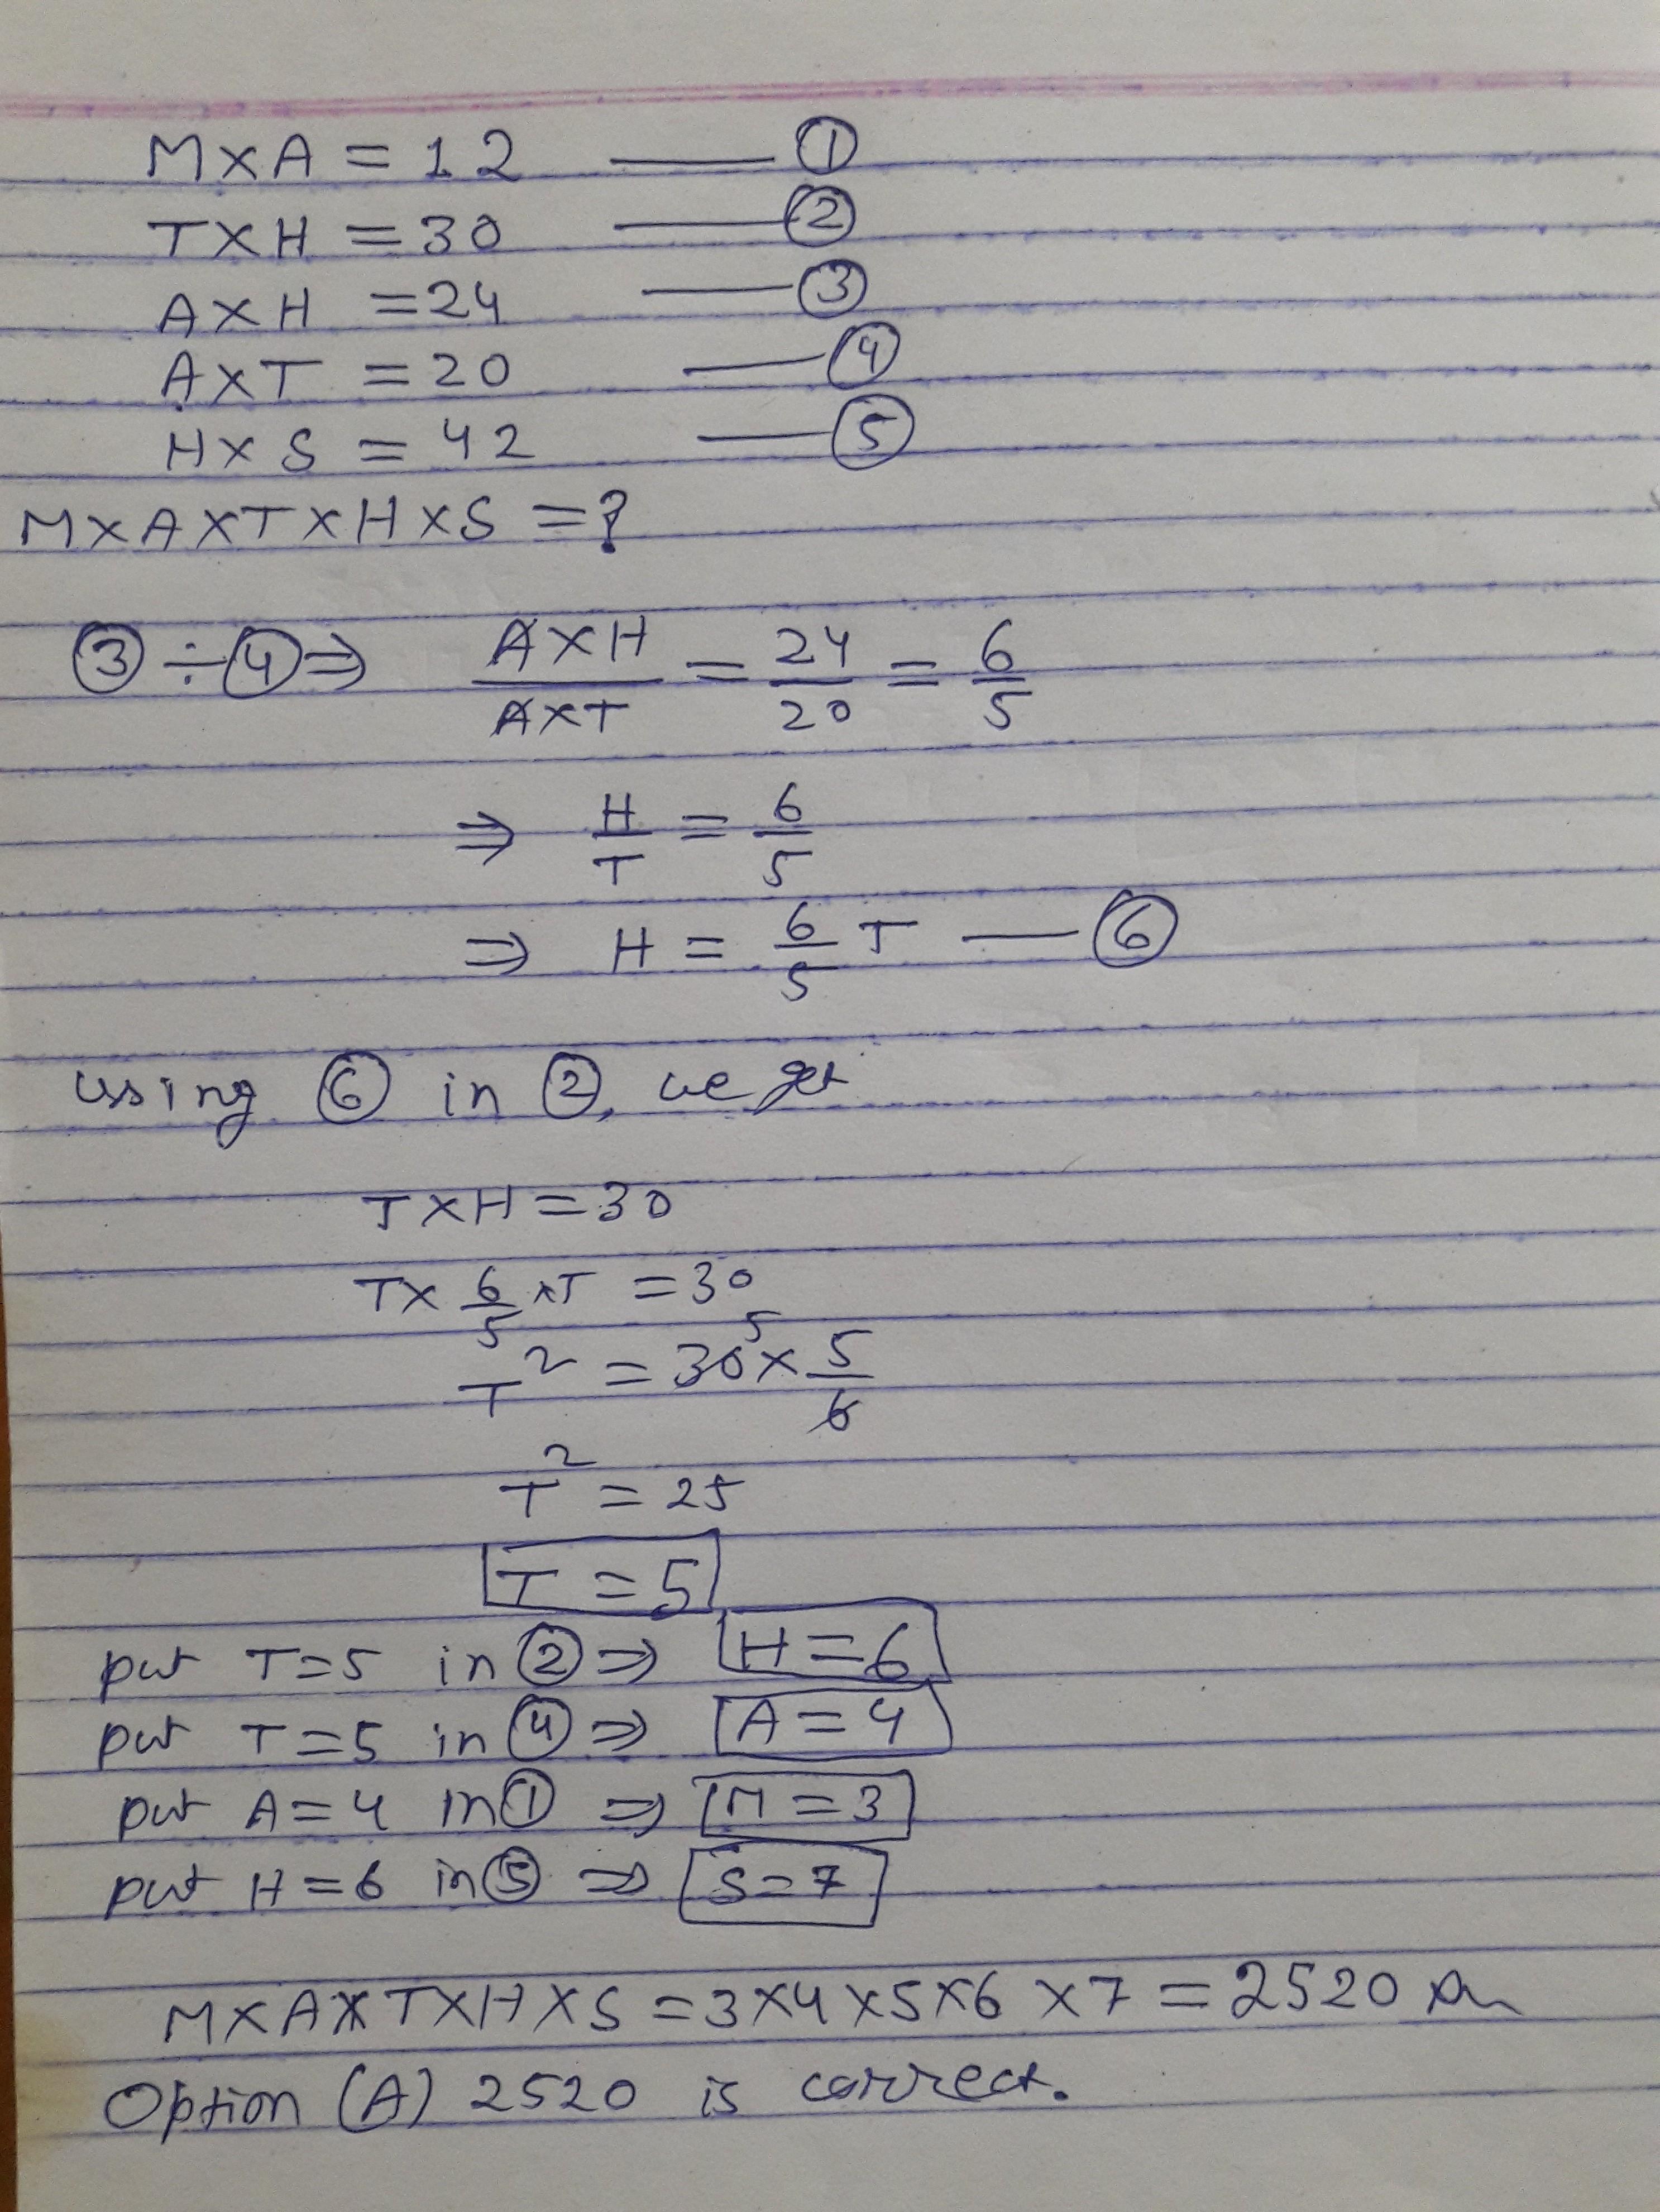 M×A = 12 —— ①
T×H = 30 —— ②
A×H = 24 —— ③
A×T = 20 —— ④
H×S = 42 —— ⑤
M×A×T×H×S = ?
③ ÷ ④ ⇒ A×H / A×T = 24/20 = 6/5
⇒ H/T = 6/5
⇒ H = 6/5 T —— ⑥
using ⑥ in ②, we get
T×H = 30
T× 6/5 ×T = 30
T² = 30 5 × 5/6
T² = 25
T = 5
put T=5 in ② ⇒ H = 6
put T=5 in ④ ⇒ A = 4
put A=4 in ① ⇒ M = 3
put H=6 in ⑤ ⇒ S = 7
M×A×T×H×S = 3×4×5×6×7 = 2520
Option (A) 2520 is correct.